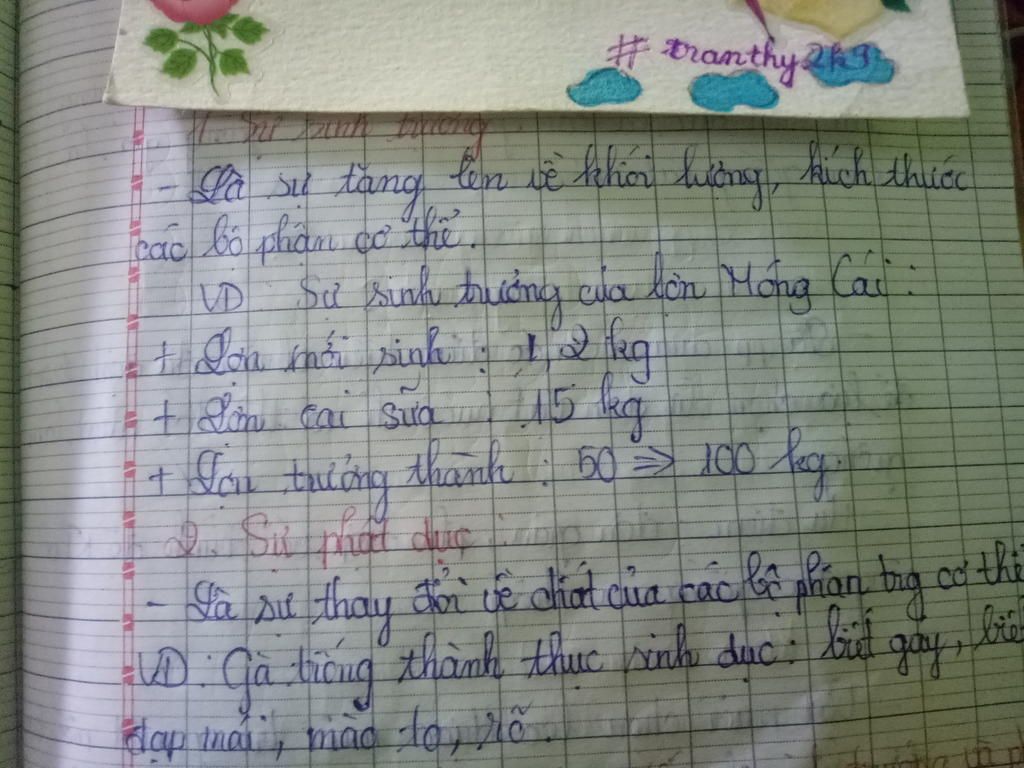 # tranthy.2k3
1. Sự sinh trưởng
- Là sự tăng lên về khối lượng, kích thước
các bộ phận cơ thể.
VD: Sự sinh trưởng của lợn Móng Cái:
+ Lợn mới sinh: 1,2 kg
+ Lợn cai sữa: 15 kg
+ Lợn trưởng thành: 50 => 100 kg.
2. Sự phát dục:
- Là sự thay đổi về chất của các bộ phận trg cơ thể
VD: Gà trống thành thục sinh dục: biết gáy, biết
đạp mái, mào to, rõ.